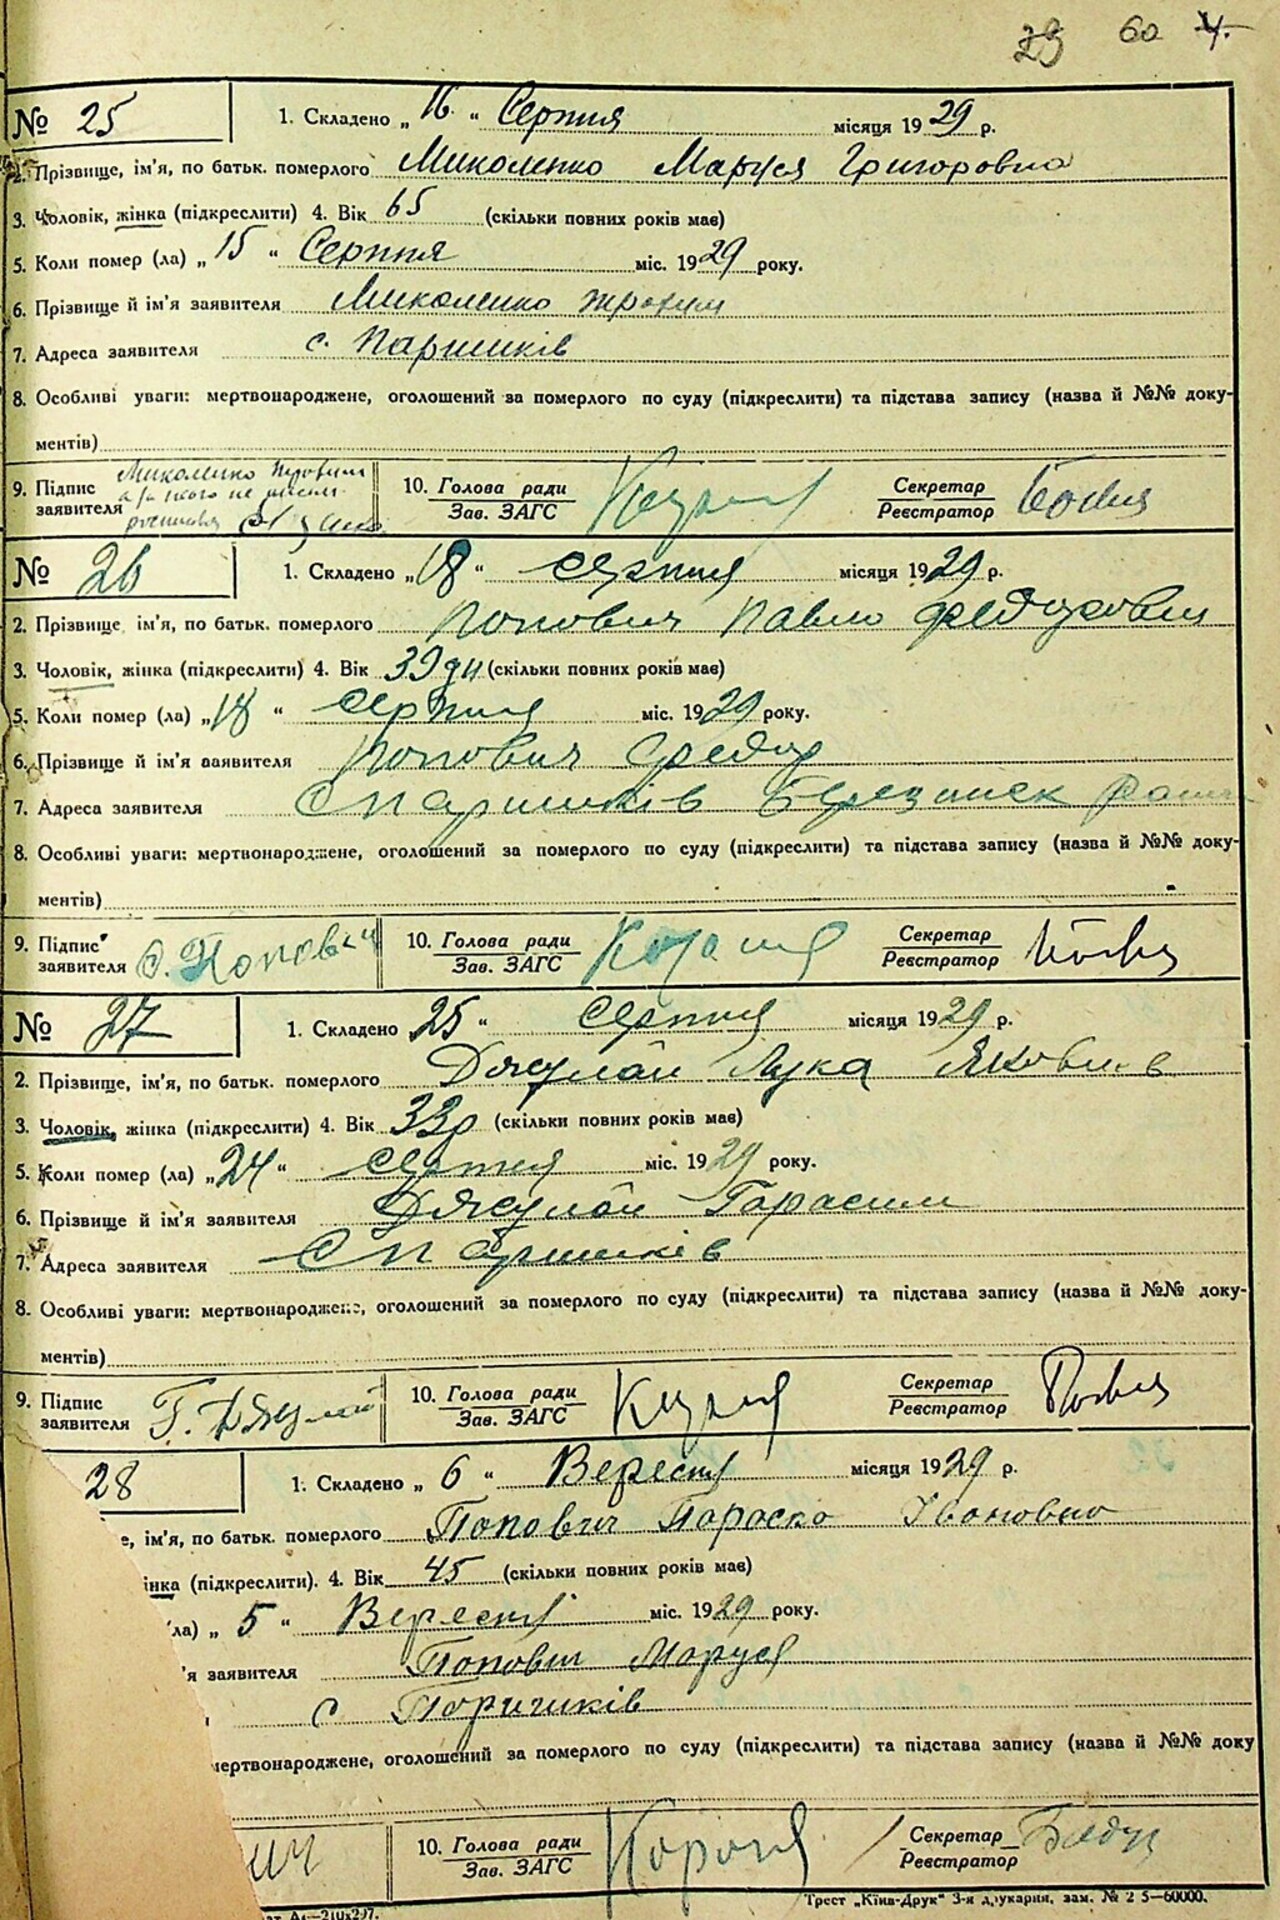 29 60 4.
№ 25 1. Складено „16“ Серпня місяця 1929 р.
2. Прізвище, ім'я, по батьк. померлого Миколенко Маруся Григоровна
3. Чоловік, жінка (підкреслити) 4. Вік 65 (скільки повних років має)
5. Коли помер (ла) „15“ Серпня міс. 1929 року.
6. Прізвище й ім'я заявителя Миколенко Трохим
7. Адреса заявителя с. Паришків
8. Особливі уваги: мертвонароджене, оголошений за померлого по суду (підкреслити) та підстава запису (назва й №№ доку-
ментів)
Миколенко Трохим
9. Підпис заявителя 10. Голова ради Зав. ЗАГС Секретар Реєстратор
№ 26 1. Складено „18“ серпня місяця 1929 р.
2. Прізвище, ім'я, по батьк. померлого Попович Павло Федорович
3. Чоловік, жінка (підкреслити) 4. Вік 39 дн (скільки повних років має)
5. Коли помер (ла) „18“ серпня міс. 1929 року.
6. Прізвище й ім'я заявителя Попович Федор
7. Адреса заявителя С Паришків Березанск Району
8. Особливі уваги: мертвонароджене, оголошений за померлого по суду (підкреслити) та підстава запису (назва й №№ доку-
ментів)
9. Підпис заявителя Попович 10. Голова ради Зав. ЗАГС Секретар Реєстратор
№ 27 1. Складено 25“ серпня місяця 1929 р.
2. Прізвище, ім'я, по батьк. померлого Дякулай Лука Яковлев
3. Чоловік, жінка (підкреслити) 4. Вік 33р (скільки повних років має)
5. Коли помер (ла) „24“ серпня міс. 1929 року.
6. Прізвище й ім'я заявителя Дякулай Гарасим
7. Адреса заявителя С Паришків
8. Особливі уваги: мертвонароджене, оголошений за померлого по суду (підкреслити) та підстава запису (назва й №№ доку-
ментів)
9. Підпис заявителя Г. Дякулай 10. Голова ради Зав. ЗАГС Секретар Реєстратор
28 1. Складено „6“ Вересня місяця 1929 р.
е, ім'я, по батьк. померлого Попович Пораско Ивановно
інка (підкреслити). 4. Вік 45 (скільки повних років має)
ла) „5“ Вересня міс. 1929 року.
'я заявителя Попович Маруся
с Поришків
мертвонароджене, оголошений за померлого по суду (підкреслити) та підстава запису (назва й №№ доку
ич 10. Голова ради Зав. ЗАГС Секретар Реєстратор
Трест „Київ-Друк“ 3-я друкарня, зам. № 2 5—60000.